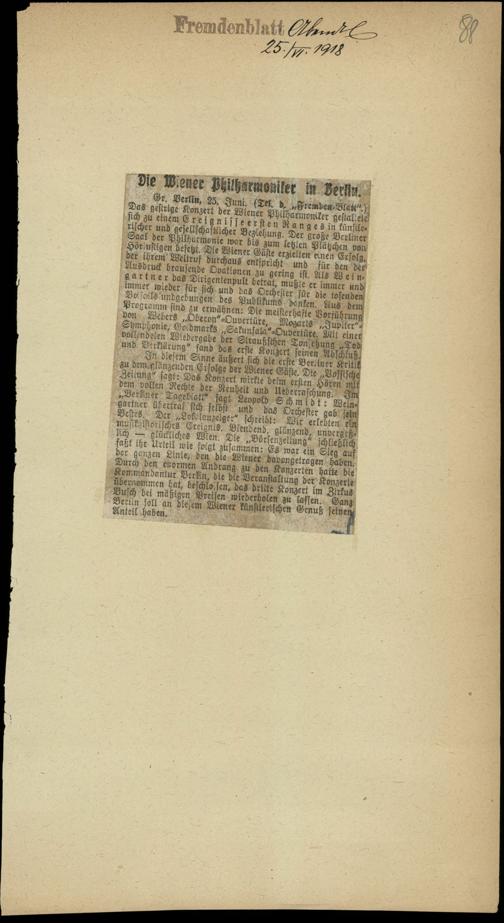 Fremdenblatt Abendbl
25./VI. 1918
88
Die Wiener Philharmoniker in Berlin.
Gr. Berlin, 25. Juni. (Tel. d. „Fremden-Blatt“.)
Das gestrige Konzert der Wiener Philharmoniker gestaltete
sich zu einem Ereignisse ersten Ranges in künstle-
rischer und gesellschaftlicher Beziehung. Der große Berliner
Saal der Philharmonie war bis zum letzten Plätzchen von
Hörlustigen besetzt. Die Wiener Gäste erzielten einen Erfolg,
der ihrem Weltruf durchaus entspricht und für den der
Ausdruck brausende Ovationen zu gering ist. Als Wein-
gartner das Dirigentenpult betrat, mußte er immer und
immer wieder für sich und das Orchester für die tosenden
Beifallskundgebungen des Publikums danken. Aus dem
Programm sind zu erwähnen: Die meisterhafte Vorführung
von Webers „Oberon“-Ouvertüre, Mozarts „Jupiter“-
Symphonie, Goldmarks „Sakuntala“-Ouvertüre. Mit einer
vollendeten Wiedergabe der Straußschen Tondichtung „Tod
und Verklärung“ fand das erste Konzert seinen Abschluß.
In diesem Sinne äußert sich die erste Berliner Kritik
zu dem glänzenden Erfolge der Wiener Gäste. Die „Vossische
Zeitung“ sagt: Das Konzert wirkte beim ersten Hören mit
dem vollen Rechte der Neuheit und Ueberraschung. Im
„Berliner Tageblatt“ sagt Leopold Schmidt: Wein-
gartner übertraf sich selbst und das Orchester gab sein
Bestes. Der „Lokalanzeiger“ schreibt: Wir erlebten ein
musikhistorisches Ereignis. Blendend, glänzend, unvergeß-
lich — glückliches Wien. Die „Börsenzeitung“ schließlich
faßt ihr Urteil wie folgt zusammen: Es war ein Sieg auf
der ganzen Linie, den die Wiener davongetragen haben.
Durch den enormen Andrang zu den Konzerten hatte die
Kommandantur Berlin, die die Veranstaltung der Konzerte
übernommen hat, beschlossen, das dritte Konzert im Zirkus
Busch bei mäßigen Preisen wiederholen zu lassen. Ganz
Berlin soll an diesem Wiener künstlerischen Genuß seinen
Anteil haben.